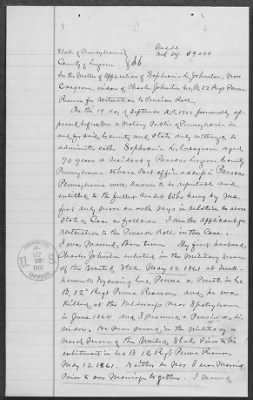 State of Pennsylvania
County of Luzerne } ss
In the Matter of Application of Sophronia L. Johnston, Now
Cosgrove, widow of Charles Johnston Co. B, 12 Regt Penna
for restoration to Pension Roll.
On the 19 day of September A.D. 1901 personally ap-
peared before me a Notary Public of Pennsylvania in
and for said County and State duly authorized to
administer oaths Sophronia L. Cosgrove, aged
70 years a resident of Parsons Luzerne County
Pennsylvania whose Post office address is Parsons
Pennsylvania well known to me to be reputable and
entitled to credit Who being by me
first duly sworn on oath says in relation to above
State & Case as follows: I am the applicant for
restoration to the Pension Roll in this Case.
I was Married two times. My first husband,
Charles Johnston enlisted in the Military Service
of the United States May 12" 1861 at
Wyoming Co, Penna as Private in Co
B. 12" Regt Penna Reserves and he was
killed at the Wilderness near Spottsylvania
in June 1864 and I
He never in the Military or
naval Service of the United States Prior to his
enlistment in Co B 12 Regt Penna Reserves
May 12, 1861. Neither he nor I ever Married
Prior to our Marriage together. I
U S
OFFICE